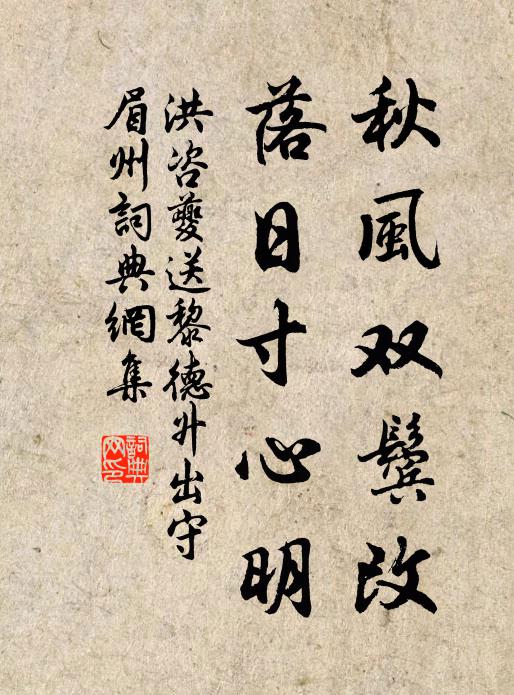 秋風双鬓改
落日寸心明
洪咨夔送黎德升出守
眉州詞典網集
詞典网印